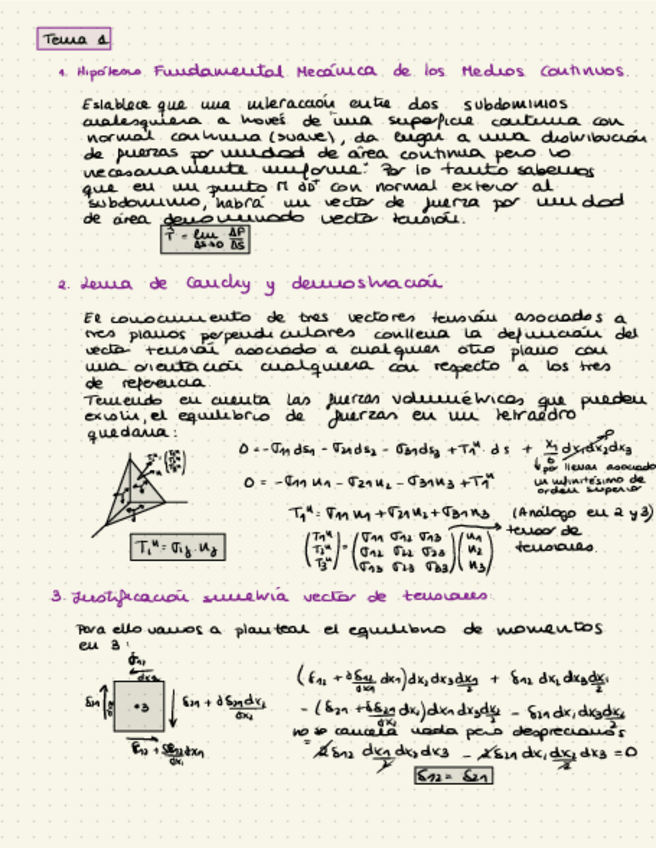 Tema 1
1. Hipótesis Fundamental Mecánica de los Medios Continuos.
Establece que una interacción entre dos subdominios
cualesquiera a través de una superficie continua con
normal continua (suave), da lugar a una distribución
de fuerzas por unidad de área continua pero no
necesariamente uniforme. Por lo tanto sabemos
que en un punto con normal exterior al
subdominio, habrá un vector de fuerza por unidad
de área denominado vector tensión.
T = lim ΔP/ΔS
ΔS→0
2. Lema de Cauchy y demostración
El conocimiento de tres vectores tensión asociados a
tres planos perpendiculares conlleva la definición del
vector tensión asociado a cualquier otro plano con
una orientación cualquiera con respecto a los tres
de referencia.
Teniendo en cuenta las fuerzas volumétricas que pueden
existir, el equilibrio de fuerzas en un tetraedro
quedaría:
0 = -σ11 ds1 - σ21 ds2 - σ31 ds3 + T1ⁿ · ds + X1/6 dx1dx2dx3
↳ por llevar asociado
un infinitésimo de
orden superior
0 = -σ11 n1 - σ21 n2 - σ31 n3 + T1ⁿ
T1ⁿ = σ11 n1 + σ21 n2 + σ31 n3 (Análogo en 2 y 3)
(T1ⁿ T2ⁿ T3ⁿ) = (σ11 σ12 σ13 σ12 σ22 σ23 σ13 σ23 σ33) (n1 n2 n3)
→ tensor de
tensiones.
Tiⁿ = σij · nj
3. Justificación simetría vector de tensiones.
Para ello vamos a plantear el equilibrio de momentos
en 3:
dx2
σ21
·3
σ21 + ∂σ21 dx1/∂x1
σ12 + ∂σ12 dx1/dx1
(σ12 + ∂σ12/dx1 dx1) dx2 dx3 dx1/2 + σ12 dx2 dx3 dx1/2
- (σ21 + ∂σ21 dx2/dx2) dx1 dx3 dx2/2 - σ21 dx1 dx3 dx2/2
no se cancela nada pero despreciamos
= 2σ12 dx1/2 dx2 dx3 - 2σ21 dx1 dx2/2 dx3 = 0
σ12 = σ21